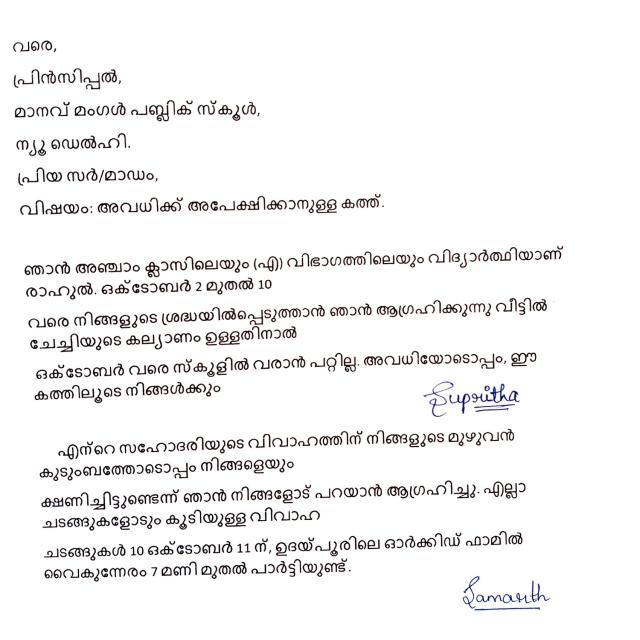 വരെ,
പ്രിൻസിപ്പൽ,
മാനവ് മംഗൾ പബ്ലിക് സ്കൂൾ,
ന്യൂ ഡെൽഹി.
പ്രിയ സർ/മാഡം,
വിഷയം: അവധിക്ക് അപേക്ഷിക്കാനുള്ള കത്ത്.
ഞാൻ അഞ്ചാം ക്ലാസിലെയും (എ) വിഭാഗത്തിലെയും വിദ്യാർത്ഥിയാണ്
രാഹുൽ. ഒക്ടോബർ 2 മുതൽ 10
വരെ നിങ്ങളുടെ ശ്രദ്ധയിൽപ്പെടുത്താൻ ഞാൻ ആഗ്രഹിക്കുന്നു വീട്ടിൽ
ചേച്ചിയുടെ കല്യാണം ഉള്ളതിനാൽ
ഒക്ടോബർ വരെ സ്കൂളിൽ വരാൻ പറ്റില്ല. അവധിയോടൊപ്പം, ഈ
കത്തിലൂടെ നിങ്ങൾക്കും
Supritha
എന്റെ സഹോദരിയുടെ വിവാഹത്തിന് നിങ്ങളുടെ മുഴുവൻ
കുടുംബത്തോടൊപ്പം നിങ്ങളെയും
ക്ഷണിച്ചിട്ടുണ്ടെന്ന് ഞാൻ നിങ്ങളോട് പറയാൻ ആഗ്രഹിച്ചു. എല്ലാ
ചടങ്ങുകളോടും കൂടിയുള്ള വിവാഹ
ചടങ്ങുകൾ 10 ഒക്ടോബർ 11 ന്, ഉദയ്പൂരിലെ ഓർക്കിഡ് ഫാമിൽ
വൈകുന്നേരം 7 മണി മുതൽ പാർട്ടിയുണ്ട്.
Samarth